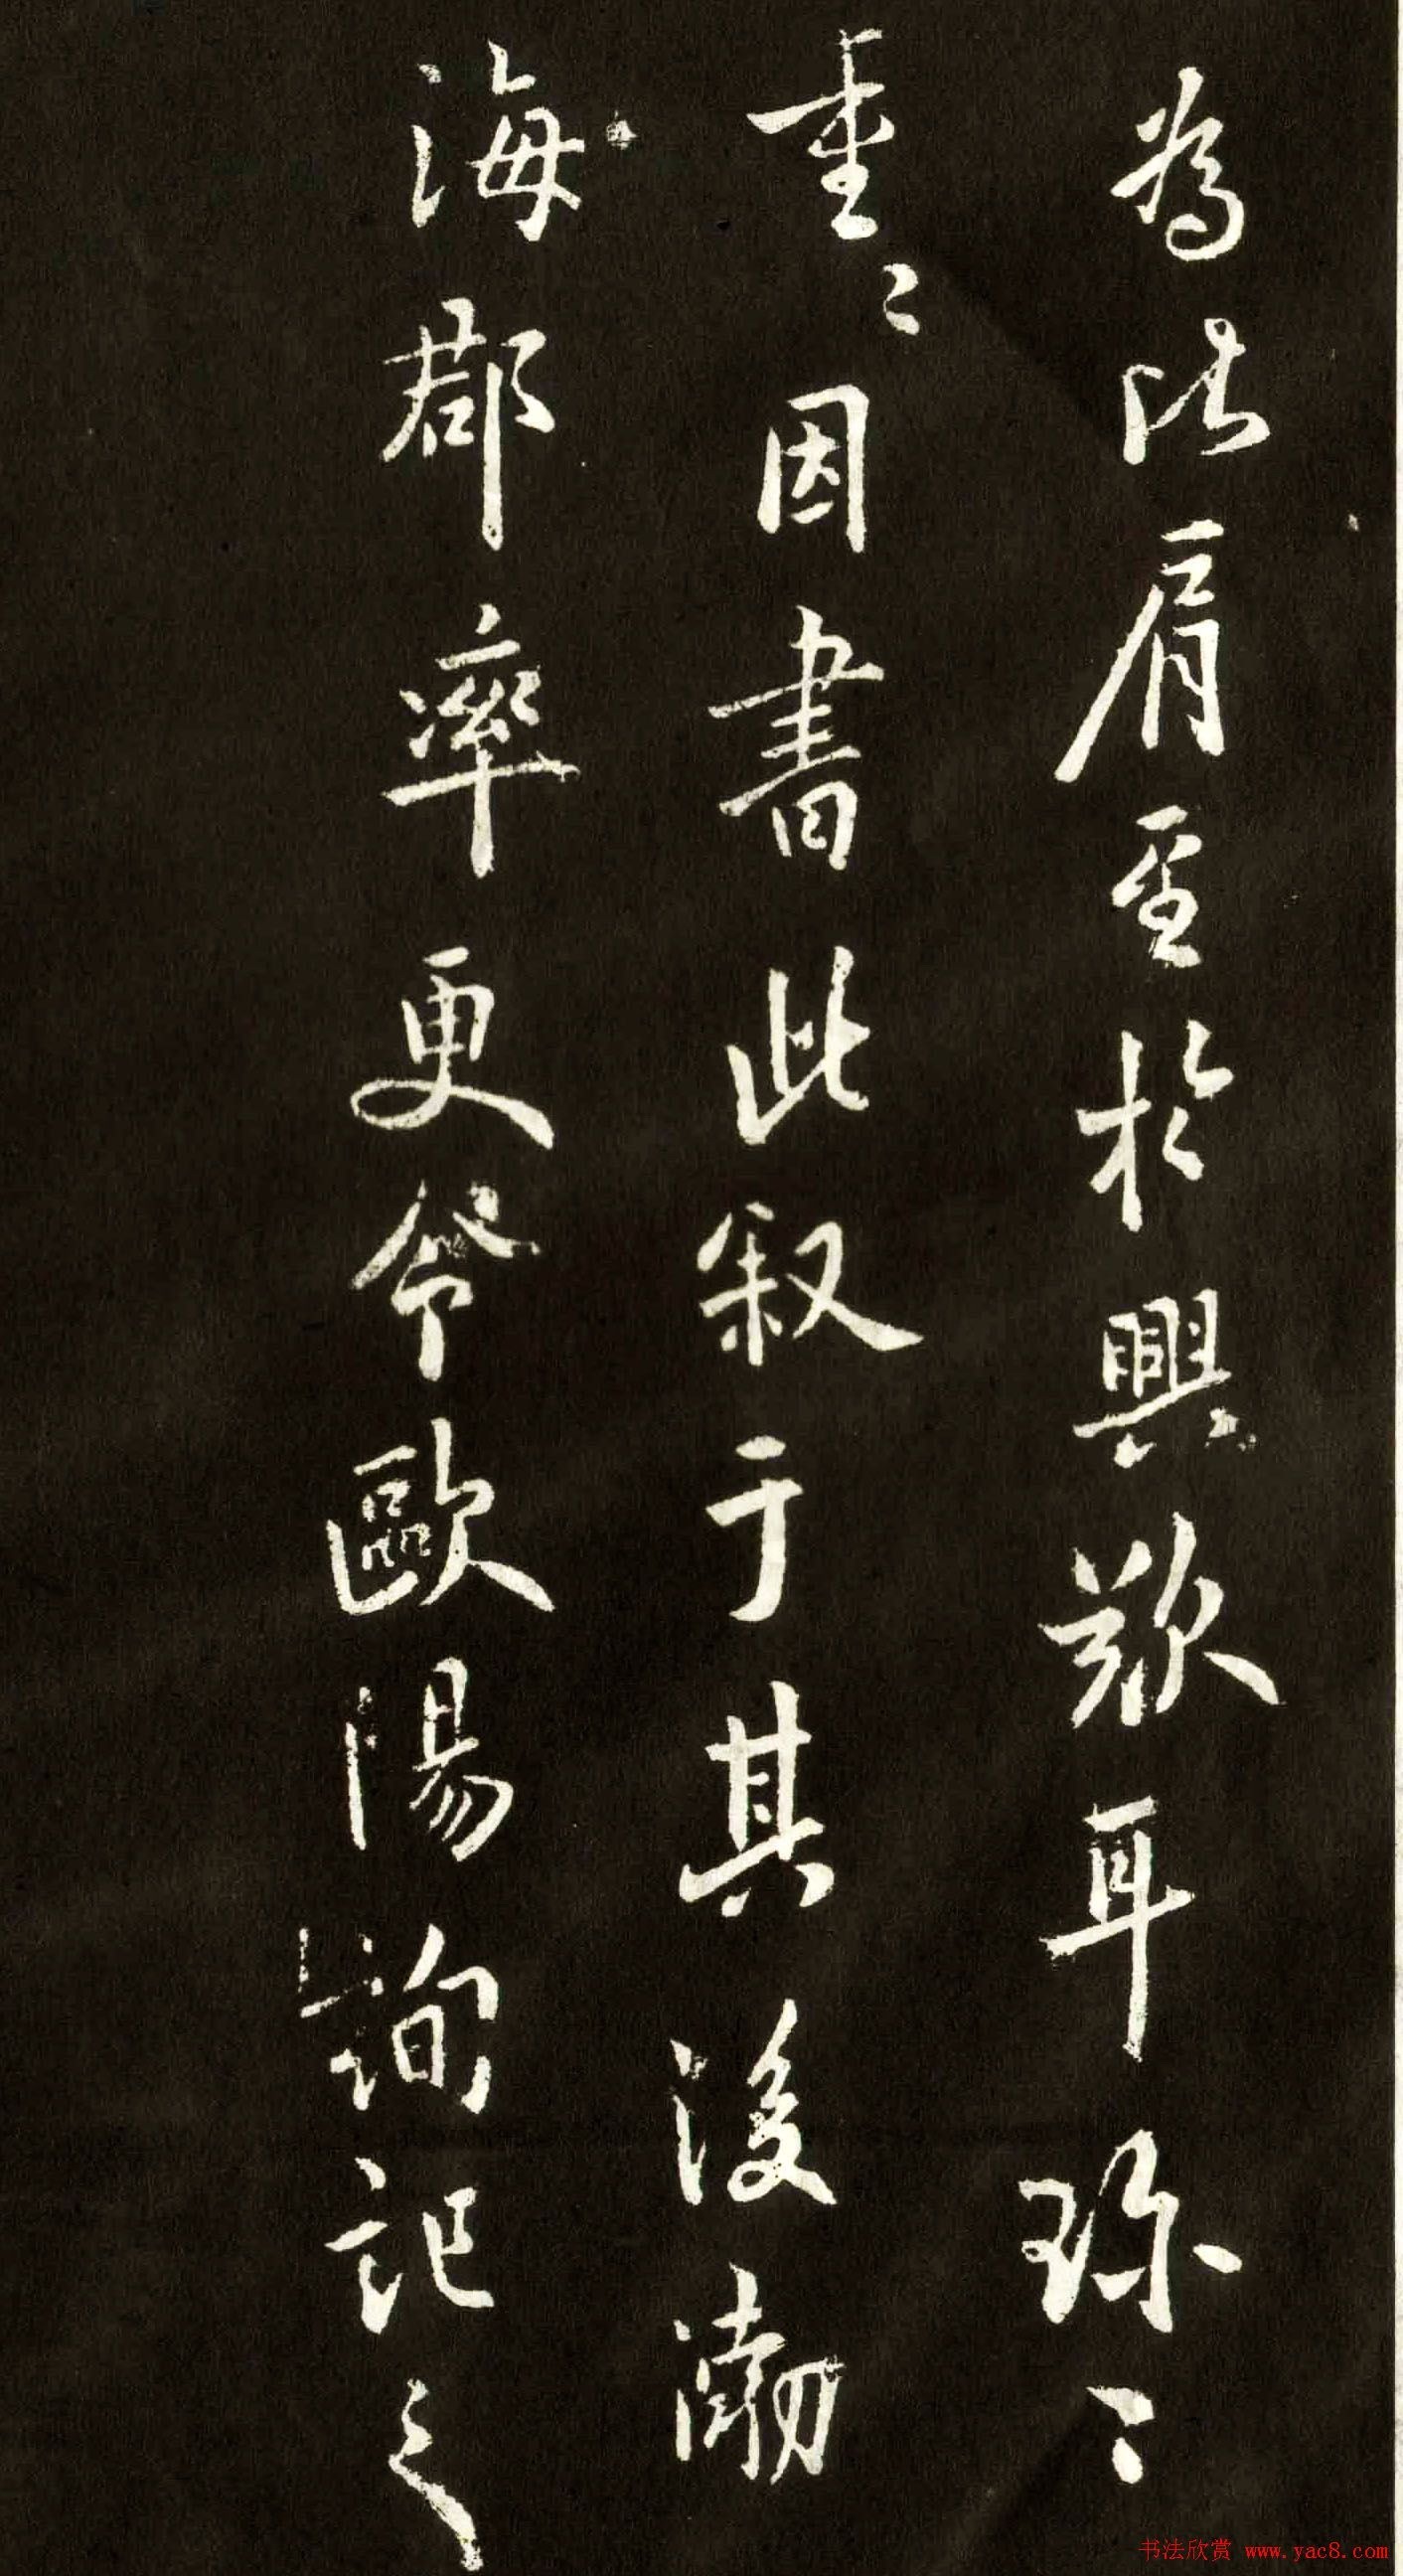 為比肩至於興歎耳珍〻
重〻因書此叙于其後渤
海郡率更令歐陽詢記之
书法欣赏 www.yac8.com